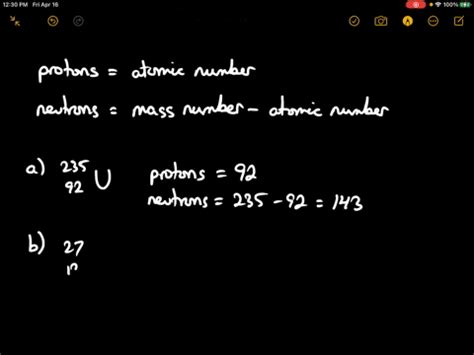 12:30 PM Fri Apr 16
100%
protons = atomic number
neutrons = mass number - atomic number
a) 235
92 U protons = 92
neutrons = 235 - 92 = 143
b) 27